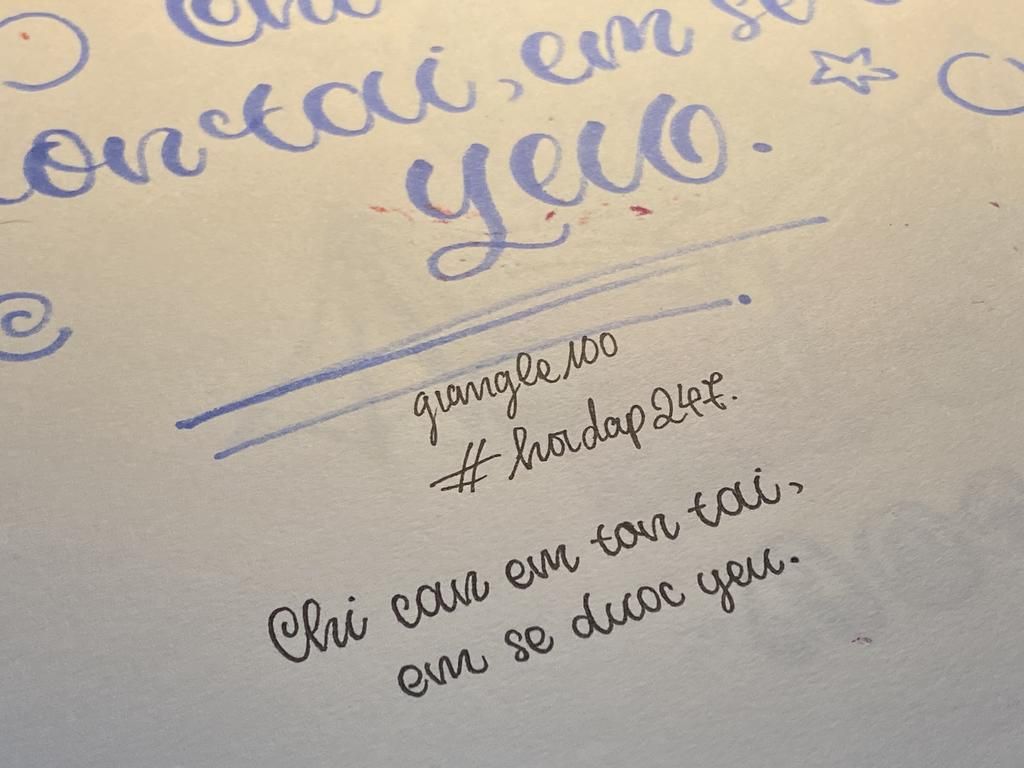 Chi
on tai, em se
yeu.
giangle100
#hoidap247.
Chi can em ton tai,
em se duoc yeu.